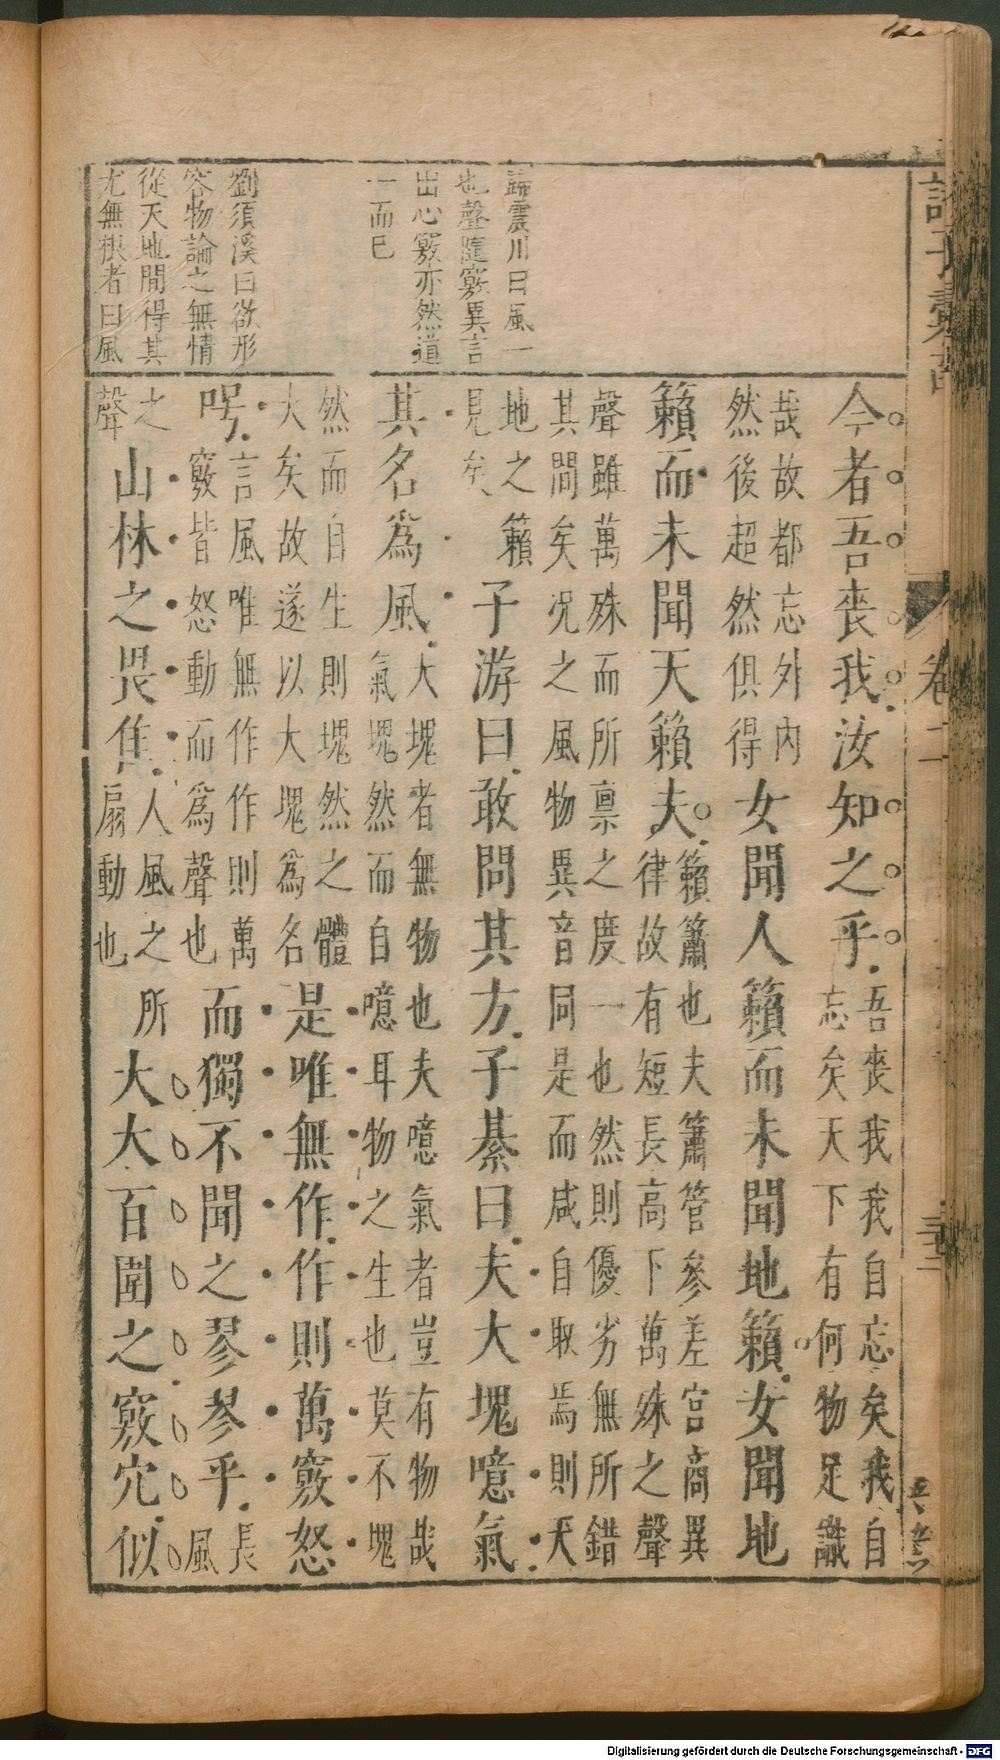 歸震川曰風一
也聲隨竅異言
出心竅亦然道
一而已
劉須溪曰欲形
容物論之無情
從天地間得其
尤無根者曰風
卷二
今者吾喪我汝知之乎吾喪我我自忘矣我自忘矣天下有何物足識
哉故都忘外內然後超然俱得女聞人籟而未聞地籟女聞地
籟而未聞天籟夫籟簫也夫簫管參差宮商異律故有短長高下萬殊之聲
聲雖萬殊而所禀之度一也然則優劣無所錯其間矣况之風物異音同是而咸自取焉則天
地之籟見矣子游曰敢問其方子綦曰夫大塊噫氣
其名為風大塊者無物也夫噫氣者豈有物哉氣塊然而自噫耳物之生也莫不塊
然而自生則塊然之體大矣故遂以大塊為名是唯無作作則萬竅怒
呺言風唯無作作則萬竅皆怒動而為聲也而獨不聞之翏翏乎長風
之聲山林之畏隹人風之所扇動也大大百圍之竅穴似
Digitalisierung gefördert durch die Deutsche Forschungsgemeinschaft - DFG